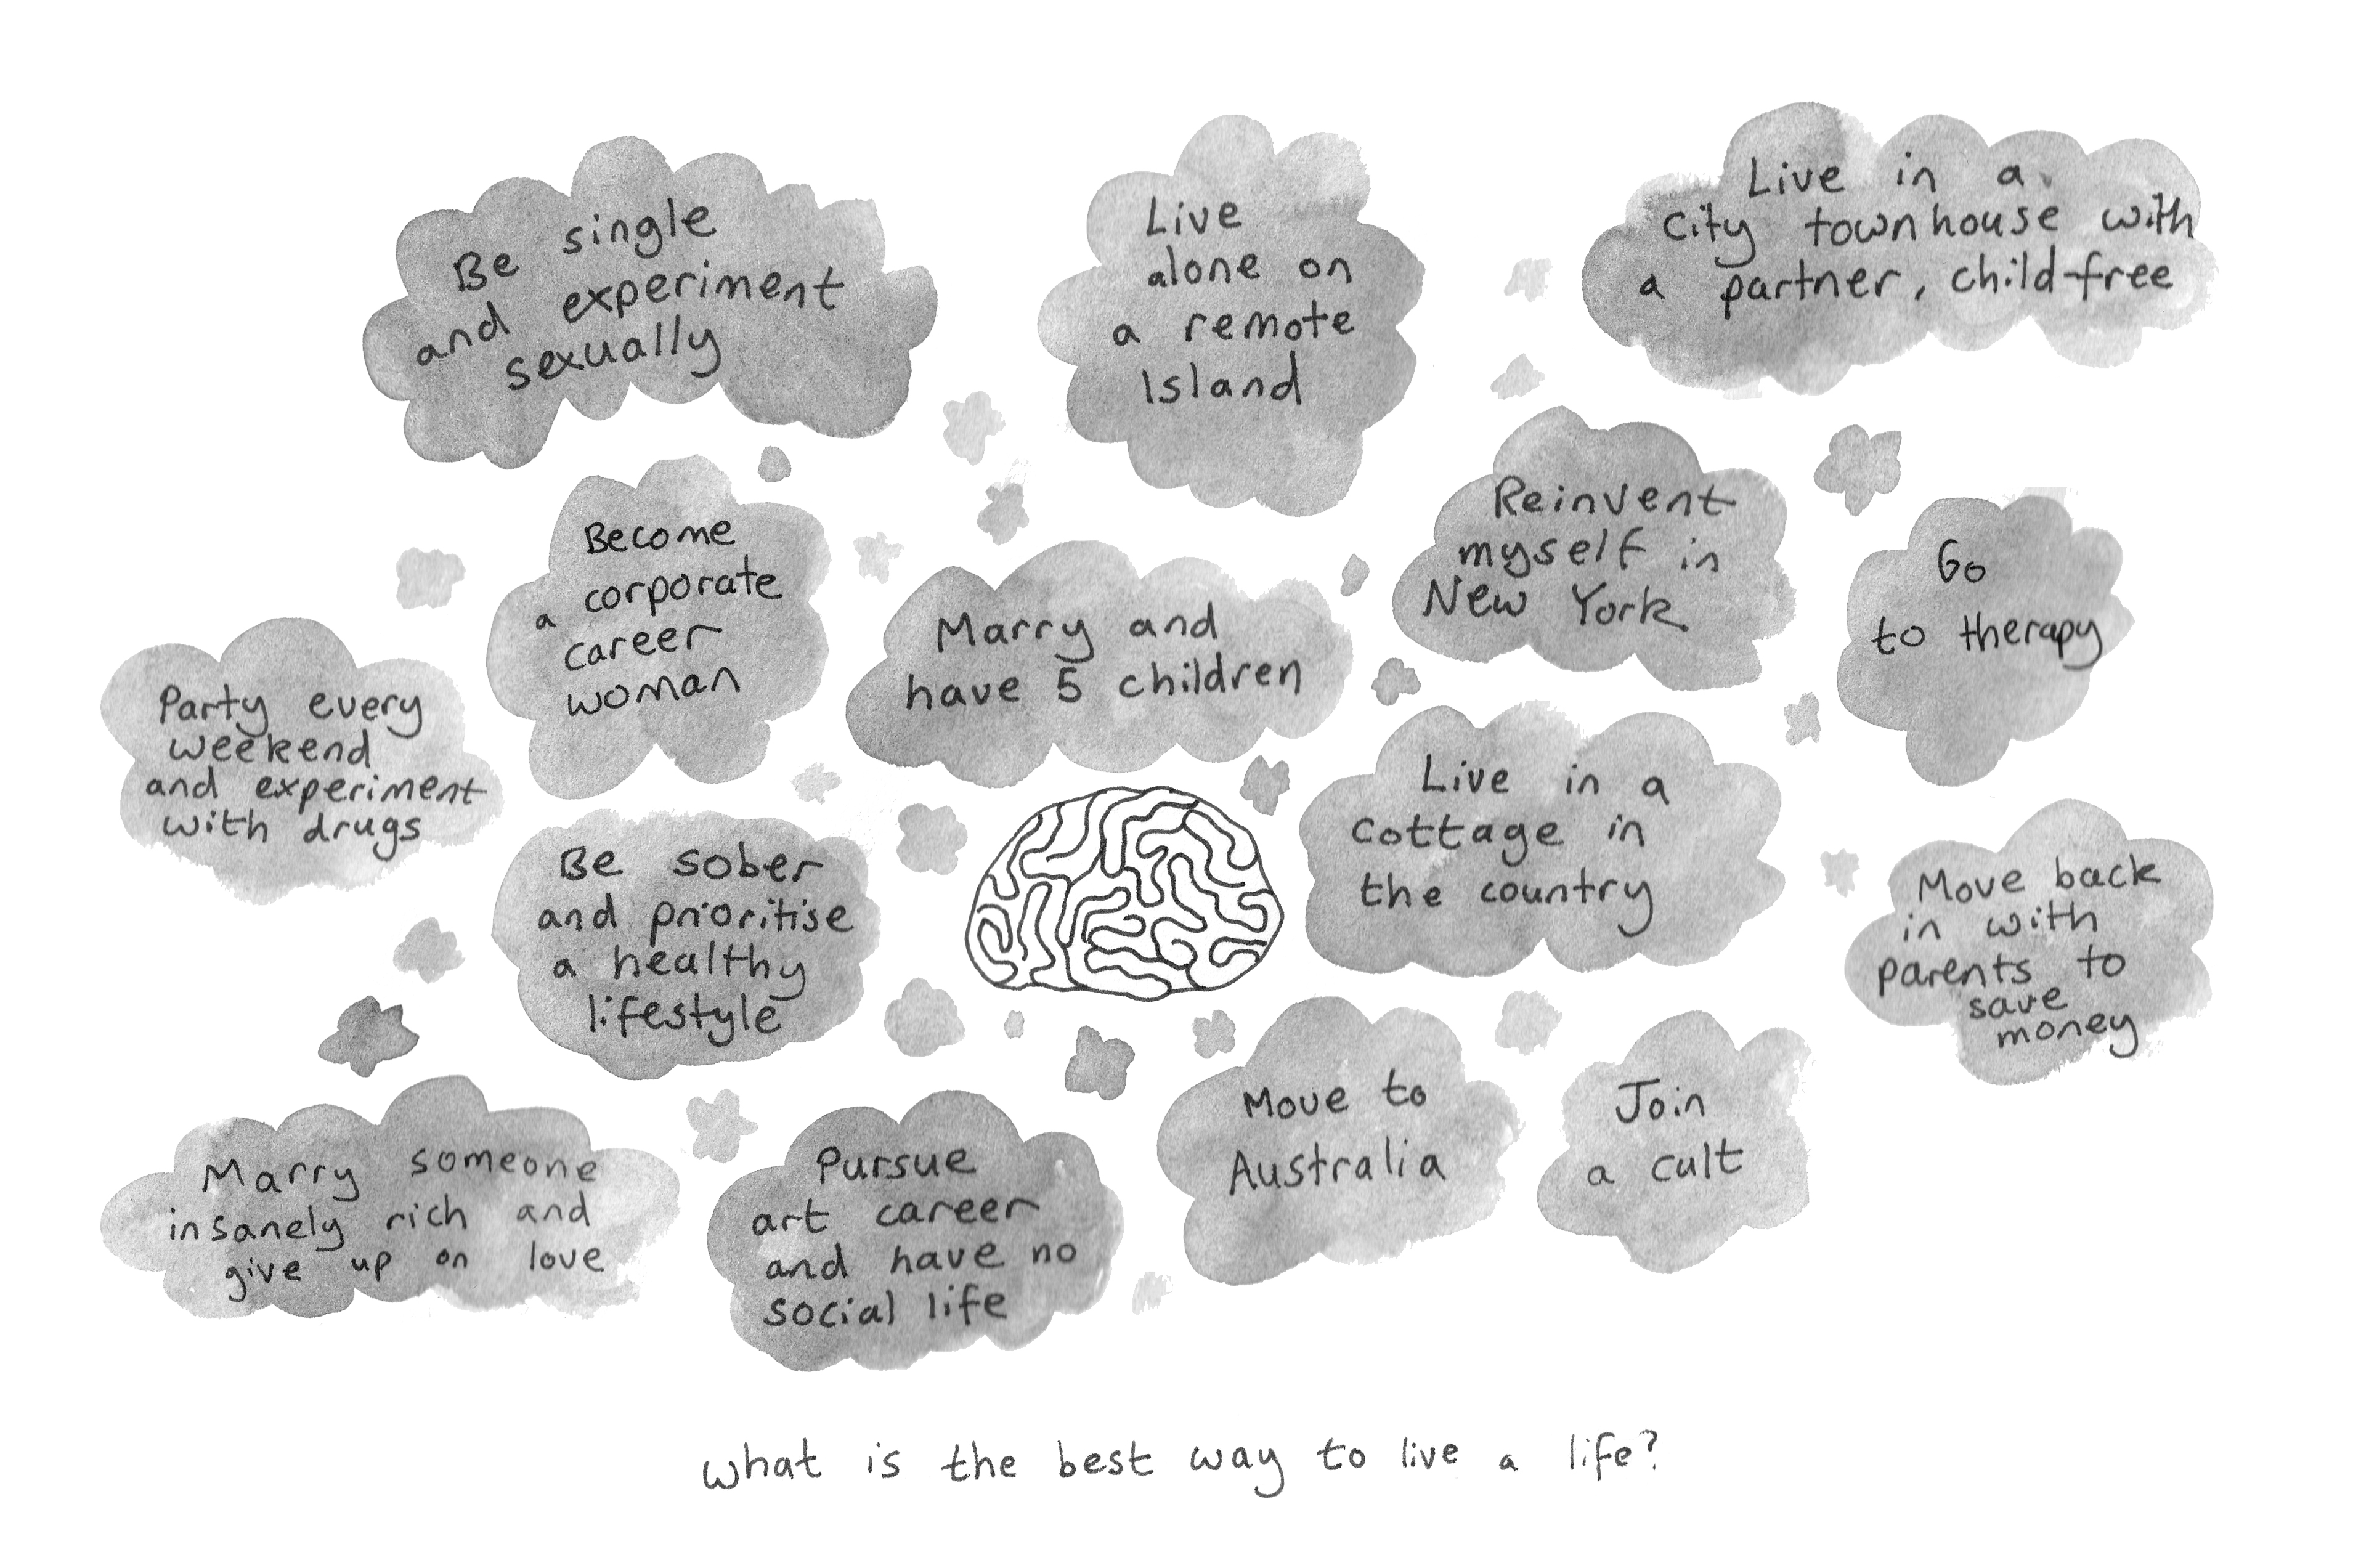 Be single
and experiment
sexually
Live
alone on
a remote
Island
Live in a
city townhouse with
a partner, child-free
Become
a corporate
career
woman
Marry and
have 5 children
Reinvent
myself in
New York
Go
to therapy
Party every
weekend
and experiment
with drugs
Be sober
and prioritise
a healthy
lifestyle
Live in a
cottage in
the country
Move back
in with
parents to
save
money
Marry someone
insanely rich and
give up on love
Pursue
art career
and have no
social life
Move to
Australia
Join
a cult
what is the best way to live a life?